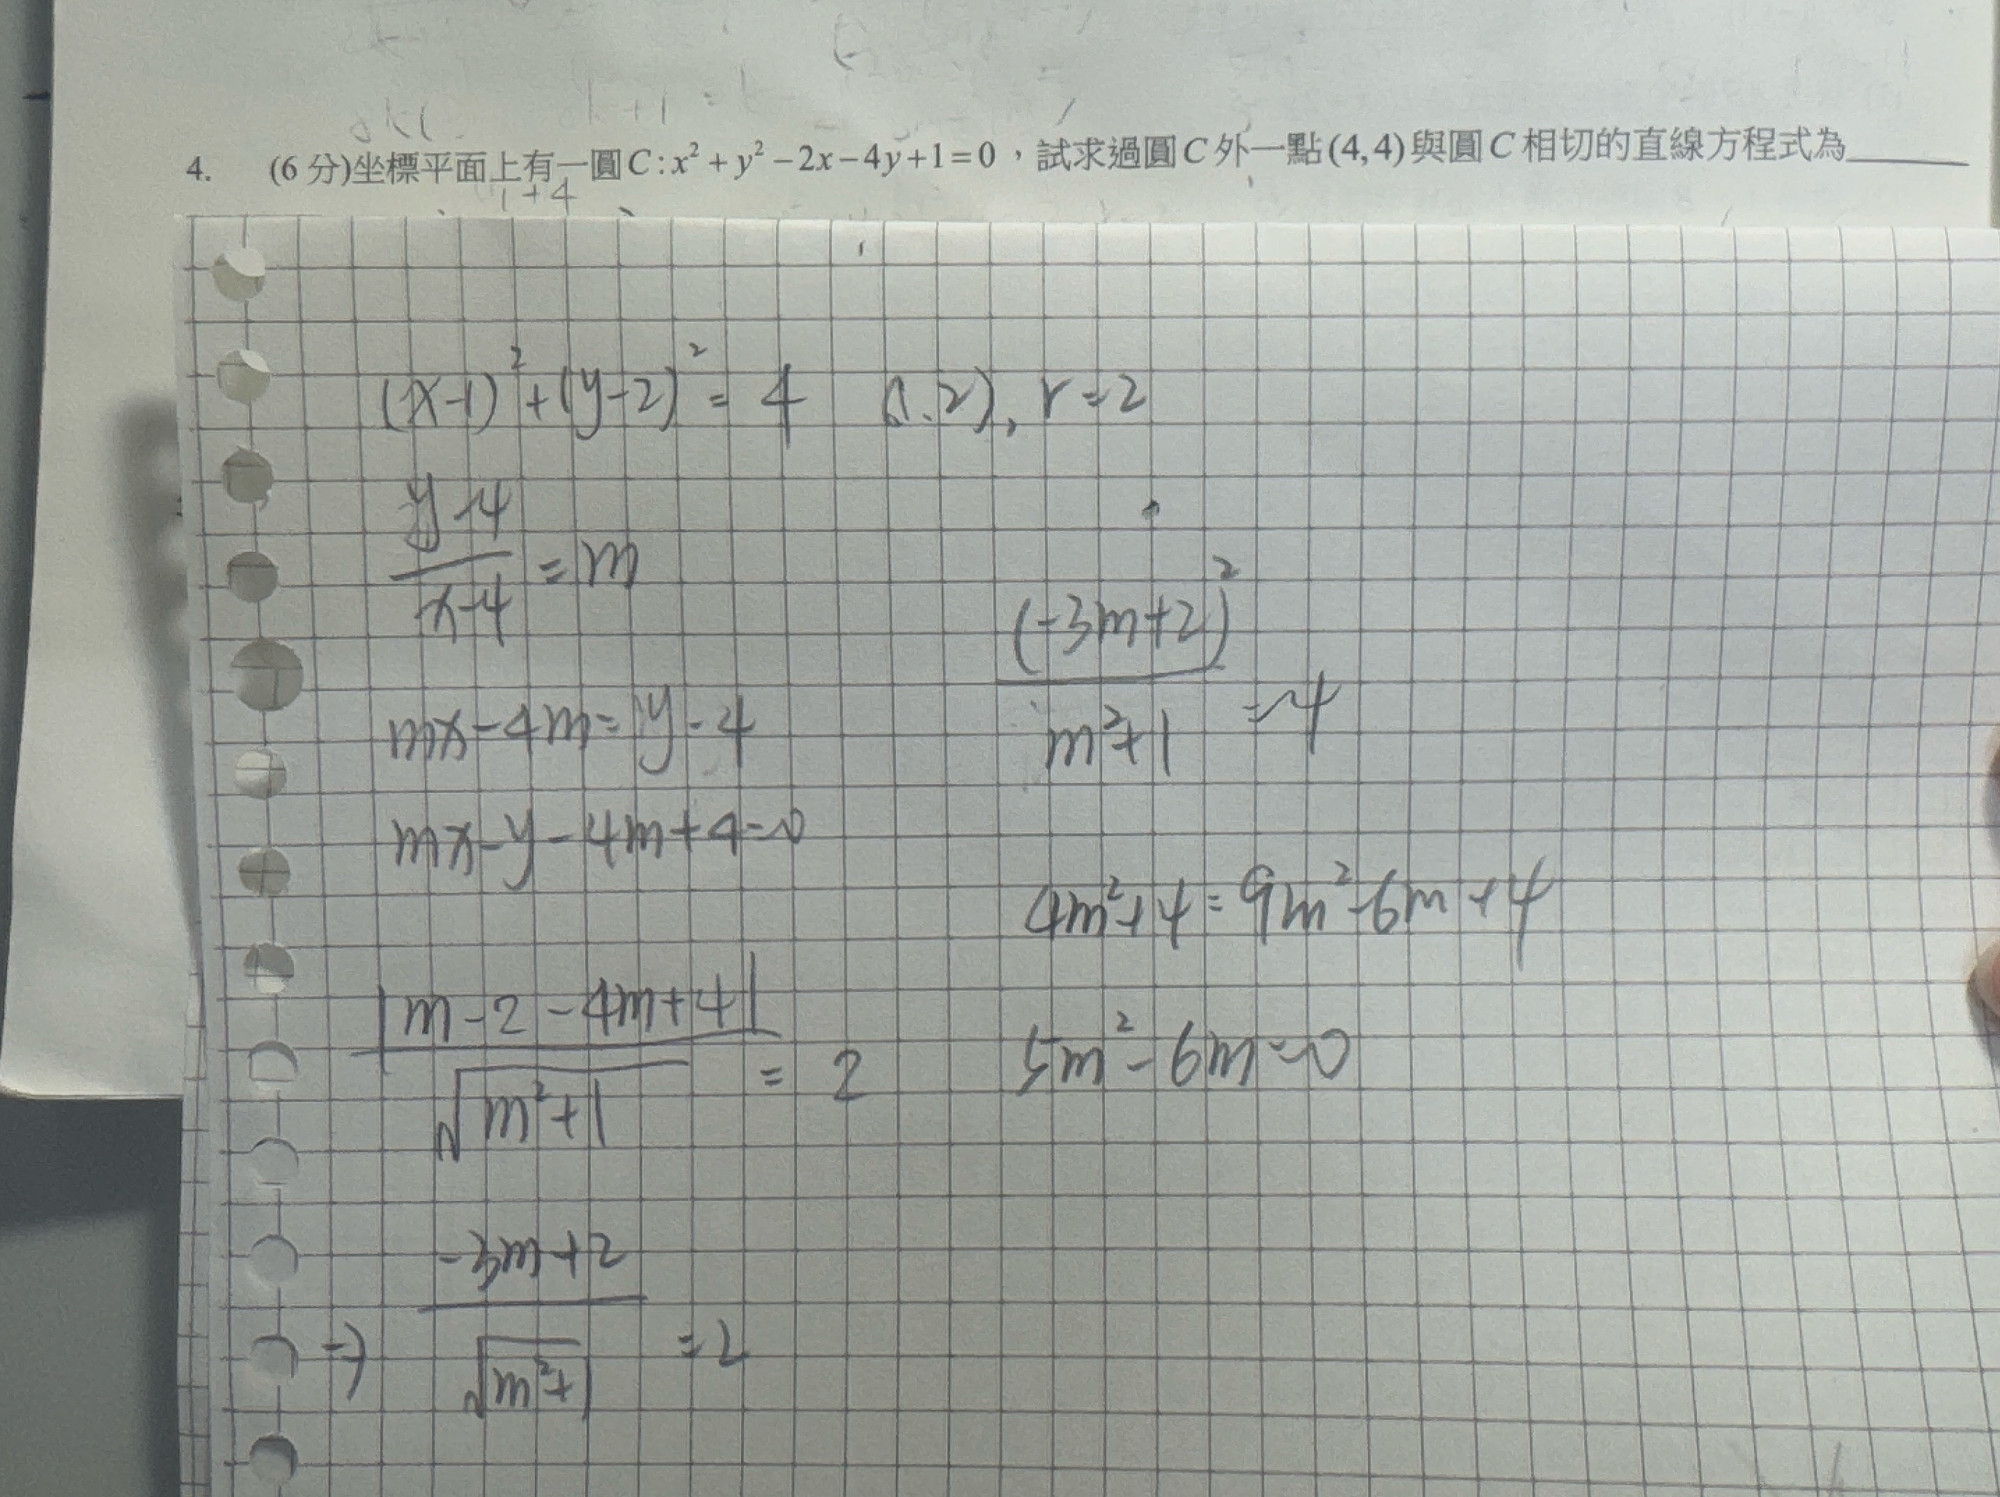 4. (6 分)坐標平面上有一圓C:x²+y²−2x−4y+1=0，試求過圓C外一點(4,4)與圓C相切的直線方程式為______
1+4
(x-1)²+(y-2)²=4 (1.2), r=2
y-4/x-4=m
mx-4m=y-4
mx-y-4m+4=0
|m-2-4m+4|/√m²+1 = 2
⇒ -3m+2/√m²+1 =2
(-3m+2)²/m²+1 =4
4m²+4=9m²-6m+4
5m²-6m=0